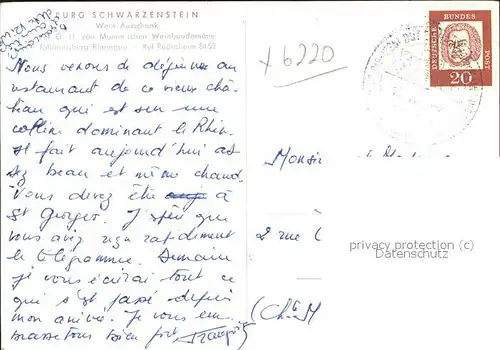 BURG SCHWARZENSTEIN
Wein Ausschank
G. H. von Mumm'schen Weinbaudomäne
Johannisberg Rheingau - Ruf Rüdesheim 8158
x 6220
DEUTSCHE BUNDESPOST
20
Nous venons de déjeuner au
restaurant de ce vieux châ-
teau qui est sur une
colline dominant le Rhin.
Il fait aujourd'hui as
sez beau et même chaud.
Vous devez être à
St Georges. J'espère que
vous avez reçu rapidement
le télégramme. Demain
je vous écrirai tout ce
qui s'est passé depuis
mon arrivée. Je vous em-
brasse tous bien fort Françoise
Monsieur et Madame
2 rue
(Ch. M
privacy protection (c)
Datenschutz